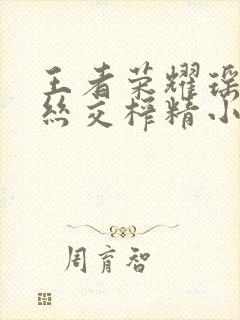 王者荣耀瑶
丝交榨精小
周育智